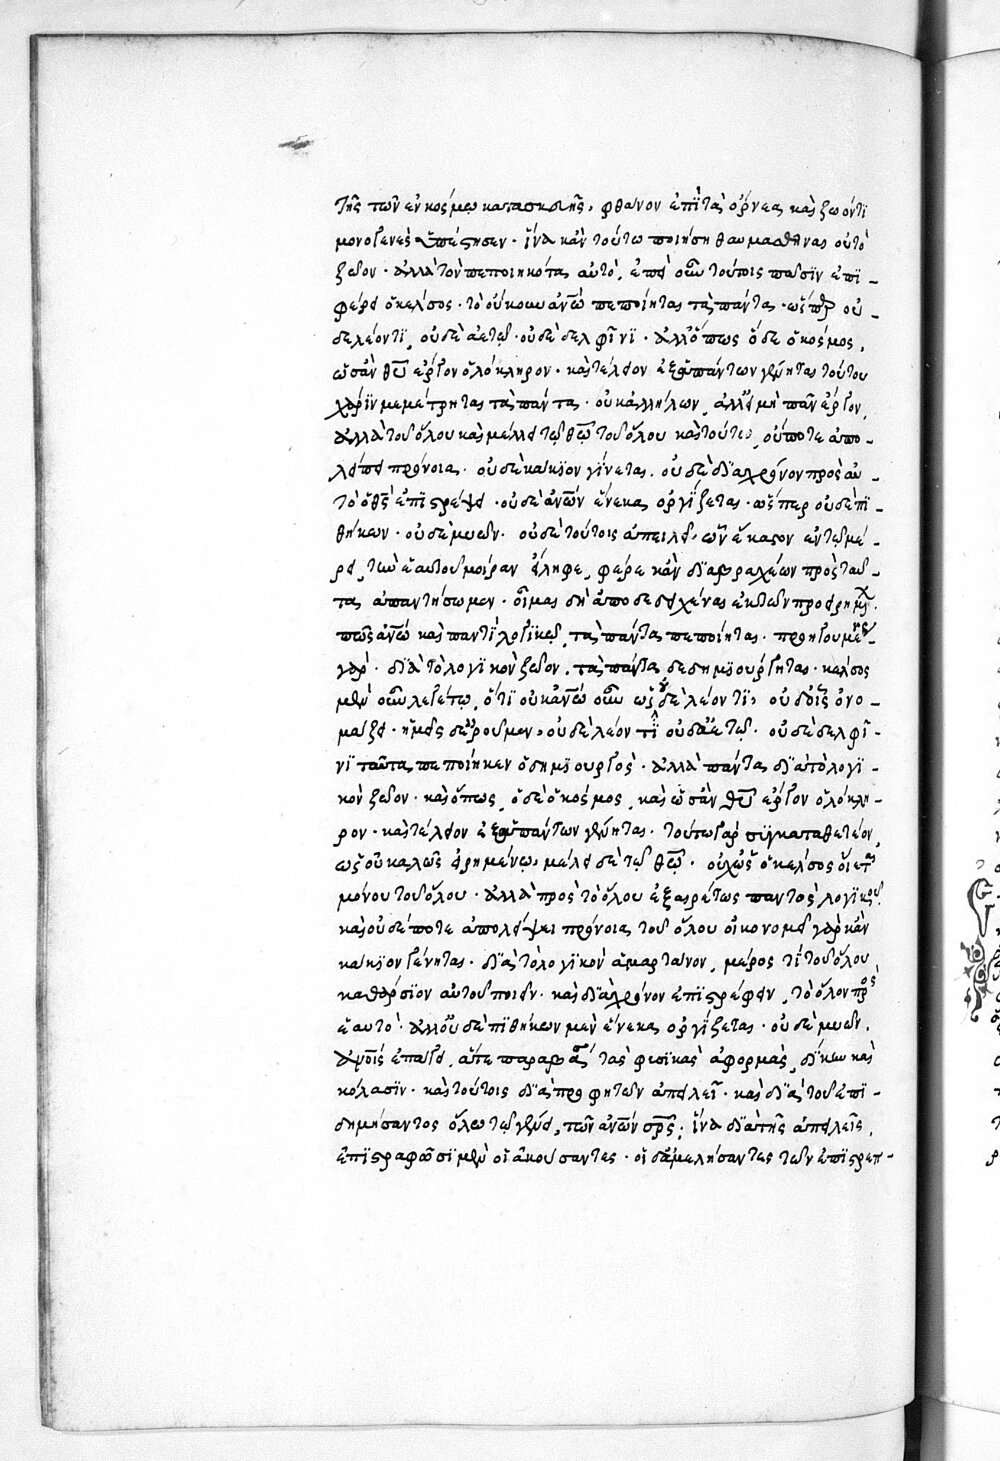 τῆς τῶν ἐν κόσμῳ κατασκευῆς, φθάνον ἐπὶ τὰ ὄρνεα καὶ ζώοντι
μονογενὲς ὑπέστησεν · ἵνα κἂν τούτῳ ποιήσῃ θαυμασθῆναι οὐ τὸ
ζῶον · ἀλλὰ τὸν πεποιηκότα αὐτό, ἐπεὶ οὖν τούτοις πᾶσιν ἐπι-
φέρει ὁ κέλσος · τὸ οὔκουν ἀνῶ πεποίηται τὰ πάντα · ὥσπερ οὐ-
δὲ λέοντι, οὐδὲ ἀετῷ · οὐδὲ δελφῖνι · ἀλλ' ὅπως ὅδε ὁ κόσμος,
ὡς ἂν θυ ἔργον ὁλόκληρον · καὶ τέλειον ἐξ ἁπάντων γένηται τούτου
χάριν μεμέτρηται τὰ πάντα · οὐκ ἀλλήλων, ἀλλ' εἰ μὴ πᾶν ἔργον,
ἀλλὰ τοῦ ὅλου καὶ μέλει τῷ θῶ τοῦ ὅλου καὶ τοῦτο, οὔποτε ἀπο-
λείπει πρόνοια · οὐδὲ κάκιον γίνεται, οὐδὲ διὰ χρόνον πρὸς ἑαυ-
τὸ ὁ θς ἐπιστρέψει · οὐδὲ ἀνῶν ἕνεκα ὀργίζεται · ὥσπερ οὐδὲ πι-
θήκων · οὐδὲ μυῶν · οὐδὲ τούτοις ἀπειλεῖ, ὧν ἕκαστον ἐν τῷ μέ-
ρει, τὴν ἑαυτοῦ μοῖραν εἴληφε, φέρε κἂν διὰ βραχέων πρὸς ταῦ-
τα ἀπαντήσωμεν · οἶμαι δὴ ἀποδεδειχέναι ἐκ τῶν προειρημένων
πῶς ἀνῶ καὶ παντὶ λογικῷ, τὰ πάντα πεποίηται · προηγουμένως
γὰρ · διὰ τὸ λογικὸν ζῶον, τὰ πάντα δεδημιούργηται · κέλσος
μὲν οὖν λεγέτω, ὅτι οὐκ ἀνῶ οὖν ὡς οὐδὲ λέοντι, οὐδ' οἷς ὀνο-
μάζει · ἡμεῖς δ' ἐροῦμεν, οὐ δὲ λέοντι οὐδ' ἀετῷ · οὐδὲ δελφῖ-
νι ταῦτα πεποίηκεν ὁ δημιουργός · ἀλλὰ πάντα διὰ τὸ λογι-
κὸν ζῶον · καὶ ὅπως, ὅδε ὁ κόσμος, καὶ ὡς ἂν θυ ἔργον ὁλόκλη-
ρον · καὶ τέλειον ἐξ ἁπάντων γένηται · τούτῳ γὰρ συγκαταθετέον
ὡς οὐ καλῶς εἰρημένῳ, μέλει δὲ τῷ θῶ · οὐχ ὡς ὁ κέλσος οἴεται
μόνου τοῦ ὅλου · ἀλλὰ πρὸς τὸ ὅλου ἐξαιρέτως παντὸς λογικοῦ,
καὶ οὐδέποτε ἀπολείψει πρόνοια τοῦ ὅλου οἰκονομεῖ γὰρ κἂν
κάκιον γένηται · διὰ τὸ λογικὸν ἁμαρτάνον, μέρος τι τοῦ ὅλου
καθάρσιον αὐτοῦ ποιεῖν · καὶ διὰ χρόνον ἐπιστρέφειν, τὸ ὅλον πρὸς
ἑαυτό · ἀλλ' οὐδὲ πιθήκων μὲν ἕνεκα ὀργίζεται · οὐδὲ μυῶν,
ἀνοῖς ἐπάγει, ἅτε παραβᾶσι τὰς φυσικὰς ἀφορμάς, δίκην καὶ
κόλασιν · καὶ τούτοις διὰ προφητῶν ἀπειλεῖ · καὶ διὰ τοῦ ἐπι-
δημήσαντος ὅλῳ τῷ γένει, τῶν ἀνῶν σρς, ἵνα διὰ τῆς ἀπειλῆς,
ἐπιστραφῶσι μὲν οἱ ἀκούσαντες · οἱ δ' ἀμελήσαντες τῶν ἐπιστρεπ-